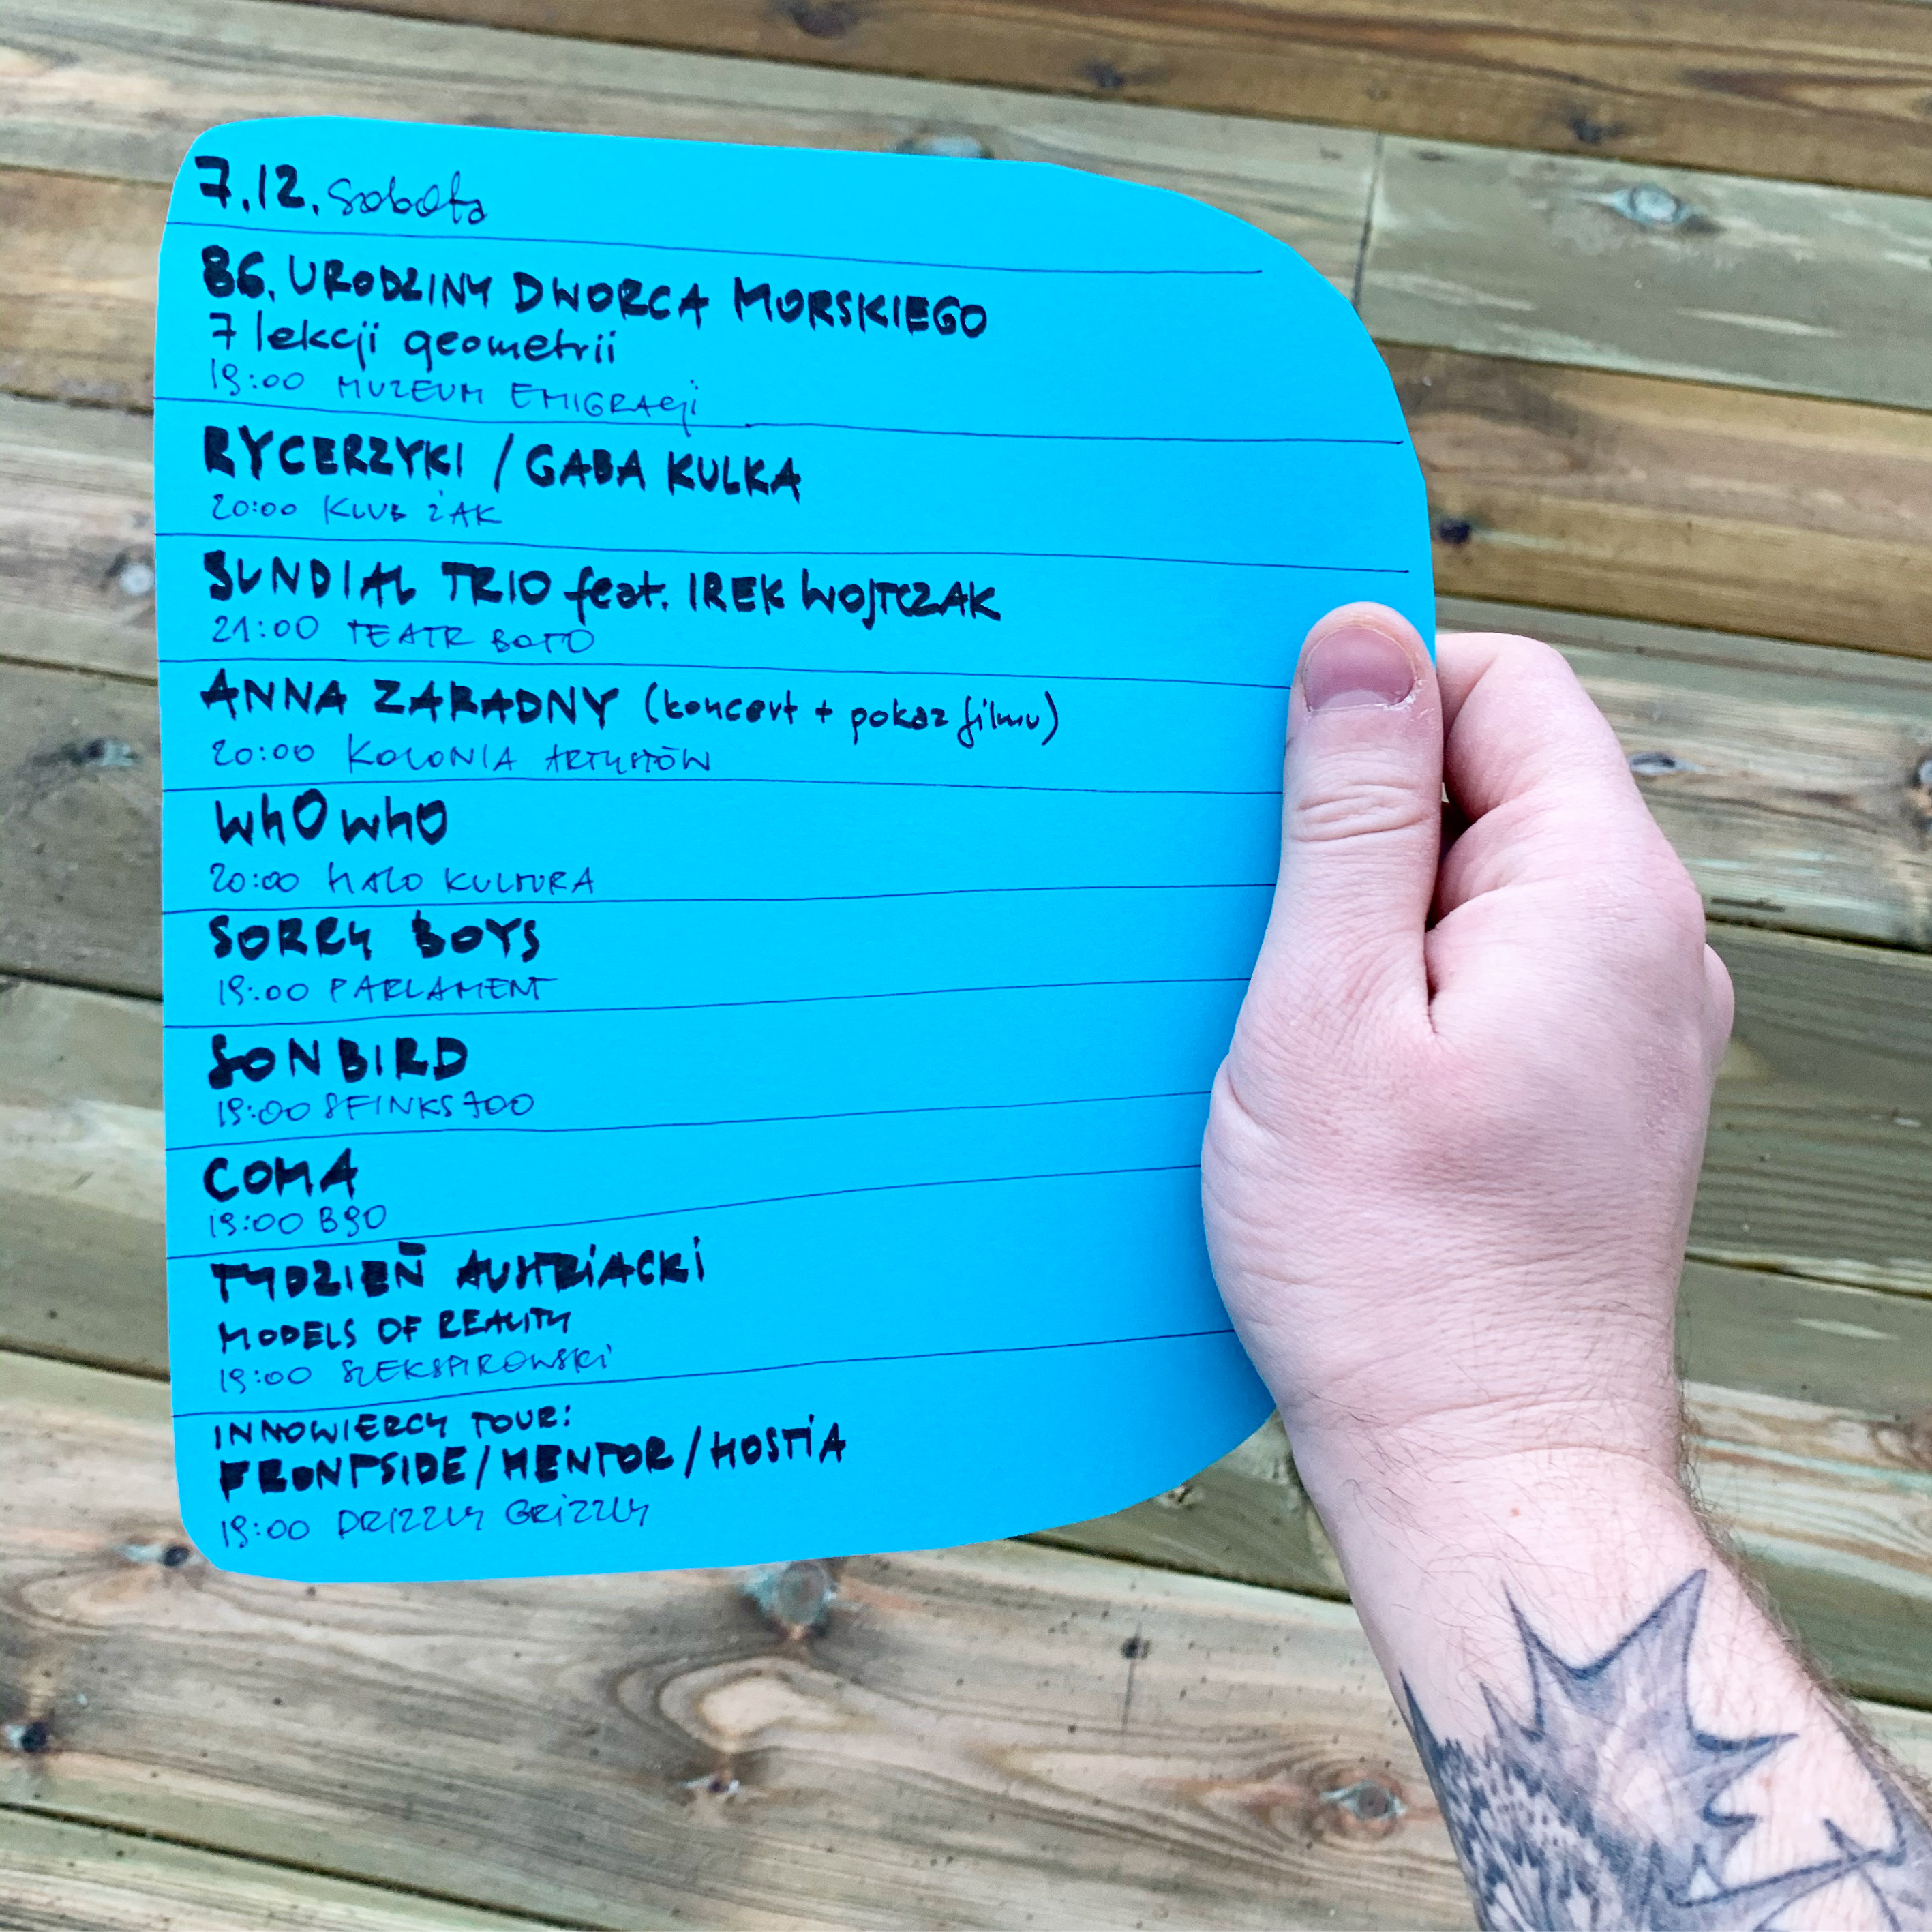 7.12. sobota
86. URODZINY DWORCA MORSKIEGO
7 lekcji geometrii
19:00 MUZEUM EMIGRACji
RYCERZYKI / GABA KULKA
20:00 KLUB ŻAK
SUNDIAL TRIO feat. IREK WOJTCZAK
21:00 TEATR BOTO
ANNA ZARADNY (koncert + pokaz filmu)
20:00 KOLONIA ARTYSTÓW
whO whO
20:00 MAŁO KULTURA
SORRY BOYS
19:00 PARLAMENT
SONBIRD
19:00 SFINKS700
COMA
19:00 B90
TYDZIEŃ AUSTRIACKI
MODELS OF REALITY
19:00 SZEKSPIROWSKI
INNOWIERCY TOUR:
FRONTSIDE/MENTOR/HOSTIA
19:00 DRIZZLY GRIZZLY